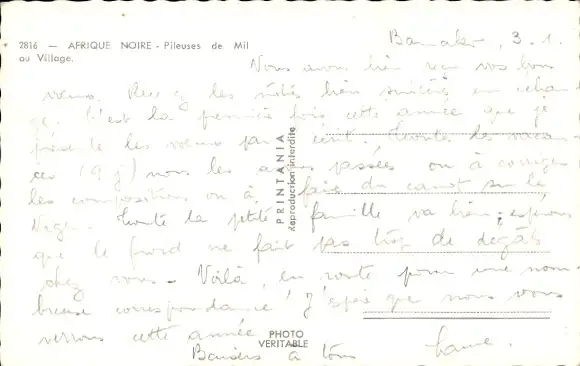 2816 — AFRIQUE NOIRE - Pileuses de Mil
au Village.
Bamako, 3.1.
Nous avons bien reçu vos bons
vœux. Recevez les nôtres bien sincères en échan
ge. C'est la première fois cette année que je
présente les vœux par écrit. Toutes les vacan
ces (9 j) nous les avons passées ou à corriger
les compositions ou à faire du canot sur le
Niger. Toute la petite famille va bien; espérons
que le froid ne fait pas trop de dégâts
chez vous - Voilà, en route pour une nom
breuse correspondance! J'espère que nous vous
verrons cette année
Baisers à tous
PRINTANIA
Reproduction interdite
PHOTO
VERITABLE